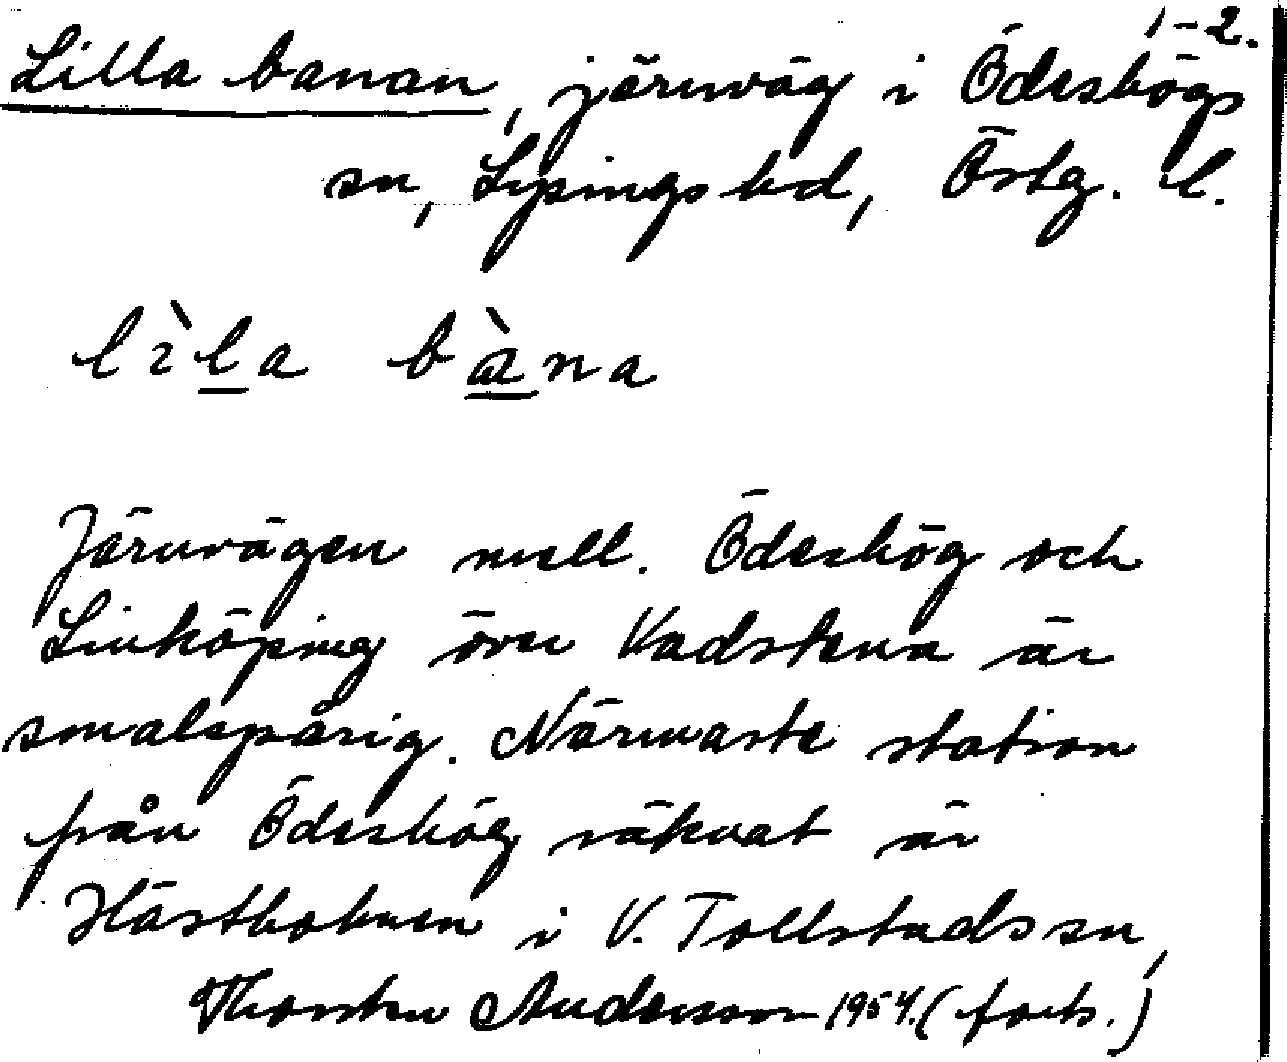 1-2.
Lilla banan, järnväg i Ödeshögs
sn, Lysings hd, Östg. l.
lìla bàna
Järnvägen mell. Ödeshög och
Linköping över Vadstena är
smalspårig. Närmaste station
från Ödeshög räknat är
Hästholmen i V. Tollstads sn,
Thorsten Andersson 1954. (forts.)